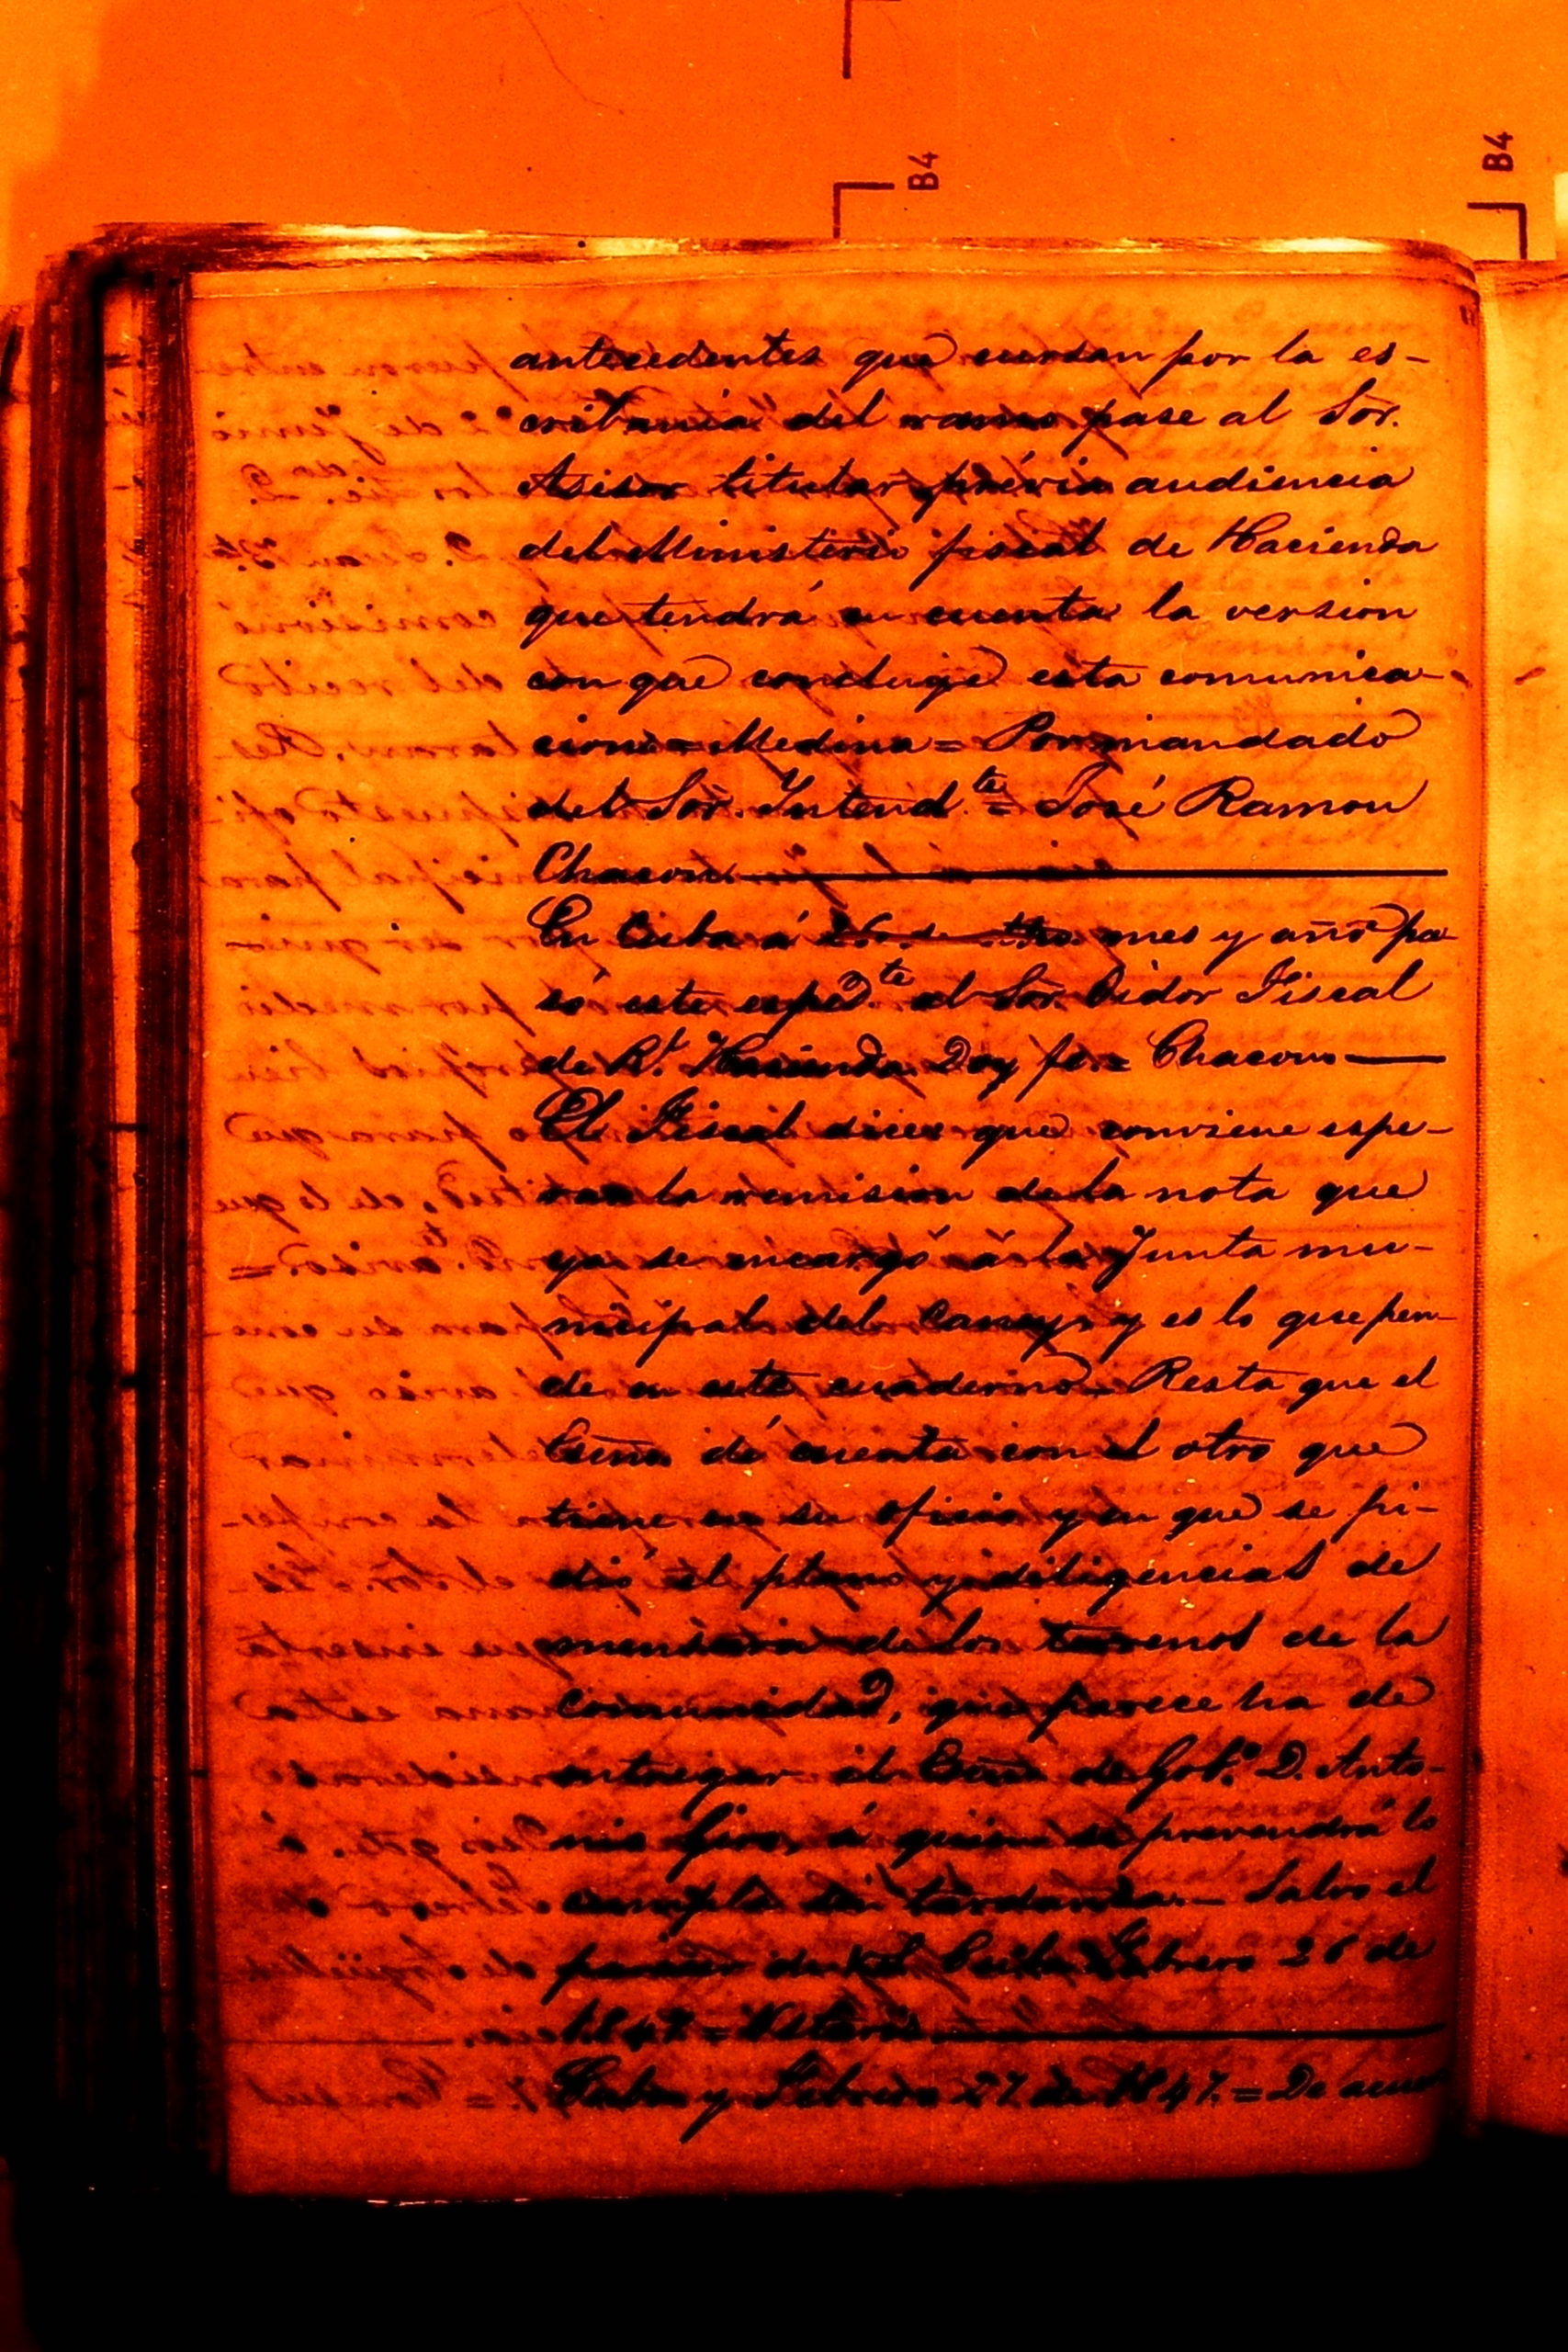 B4
B4
antecedentes que cursan por la es-
cribanía del ramo pase al Sor.
Asesor titular prévia audiencia
del Ministerio fiscal de Hacienda
que tendrá en cuenta la version
con que concluye esta comunica-
cion = Medina = Por mandado
del Sor. Yntend.te = José Ramon
Chacon
En Cuba á mes y año pa-
só este exped.te al Sor. Oidor Fiscal
de Rl. Hacienda Doy fe = Chacon
El Fiscal dice que conviene espe-
rar la remision de la nota que
ya se encargó á la Junta mu-
nicipal del Caney, y es lo que pen-
de en este cuaderno. Resta que el
Esno. dé cuenta con el otro que
tiene en su oficio y en que se pi-
dió el plano y diligencias de
mensura de los terrenos de la
comunidad, que parece ha de
entregar el Esno. de Gob.o D. Anto-
nio Giro, á quien se prevendrá lo
cumpla sin tardanza. Salvo el
parecer de Cuba Febrero 26 de
1847. =
Cuba y Febrero 27 de 1847. = De acuer